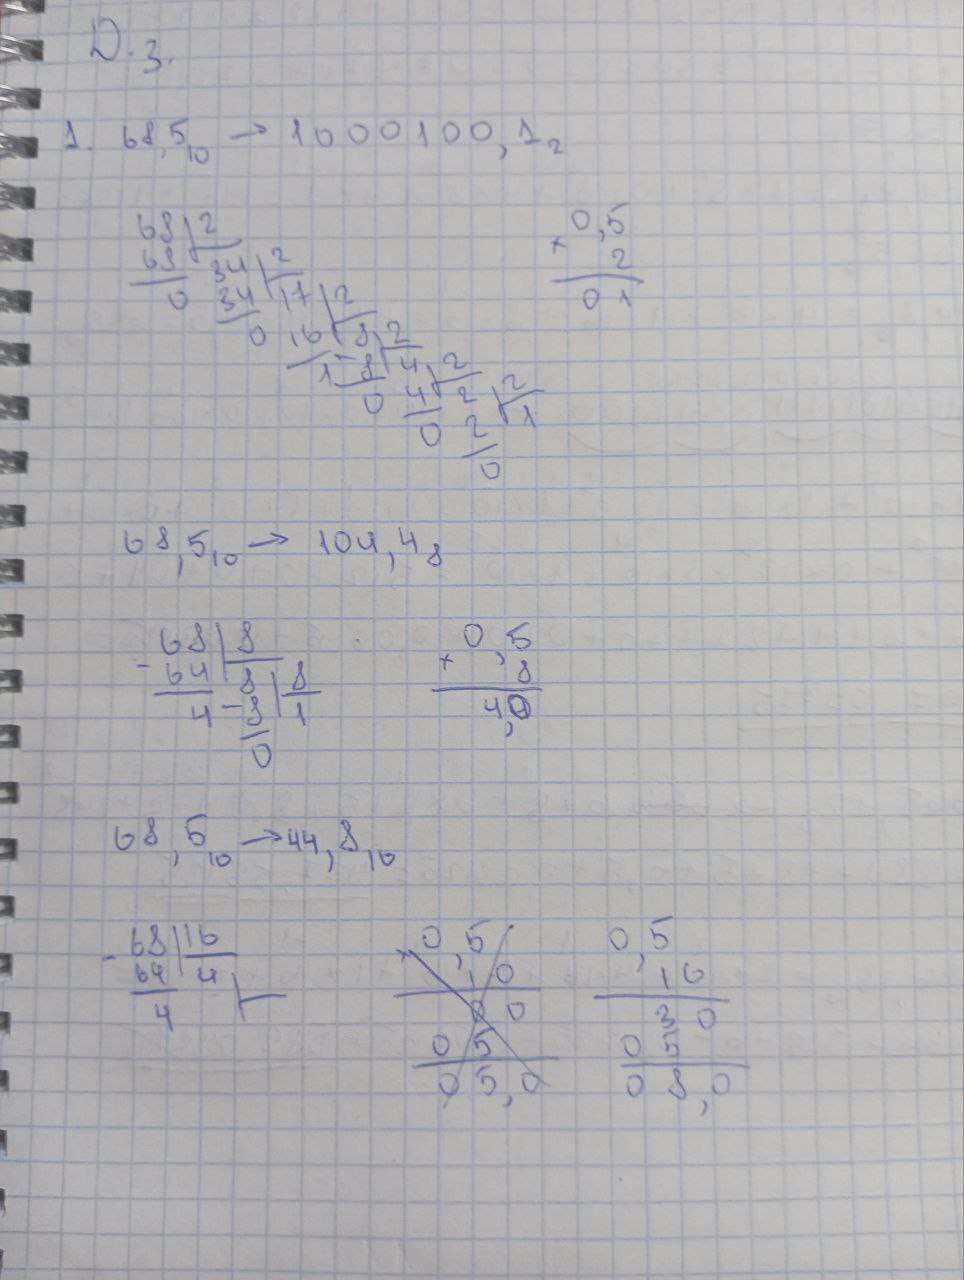 Д.з.
1. 68,5₁₀ → 1000100,1₂
68 2
68 34 2
0 34 17 2
0 16 8 2
1 - 8 4 2
0 4 2 2
0 2 1
0
0,5
× 2
0 1
68,5₁₀ → 104,4₈
68 8
- 64 8 8
4 - 8 1
0
0,5
× 8
4,0
68,5₁₀ → 44,8₁₆
- 68 16
64 4
4
× 0,5
1 0
0 0
0 5
0 5,0
0,5
1 6
3 0
0 5
0 8,0